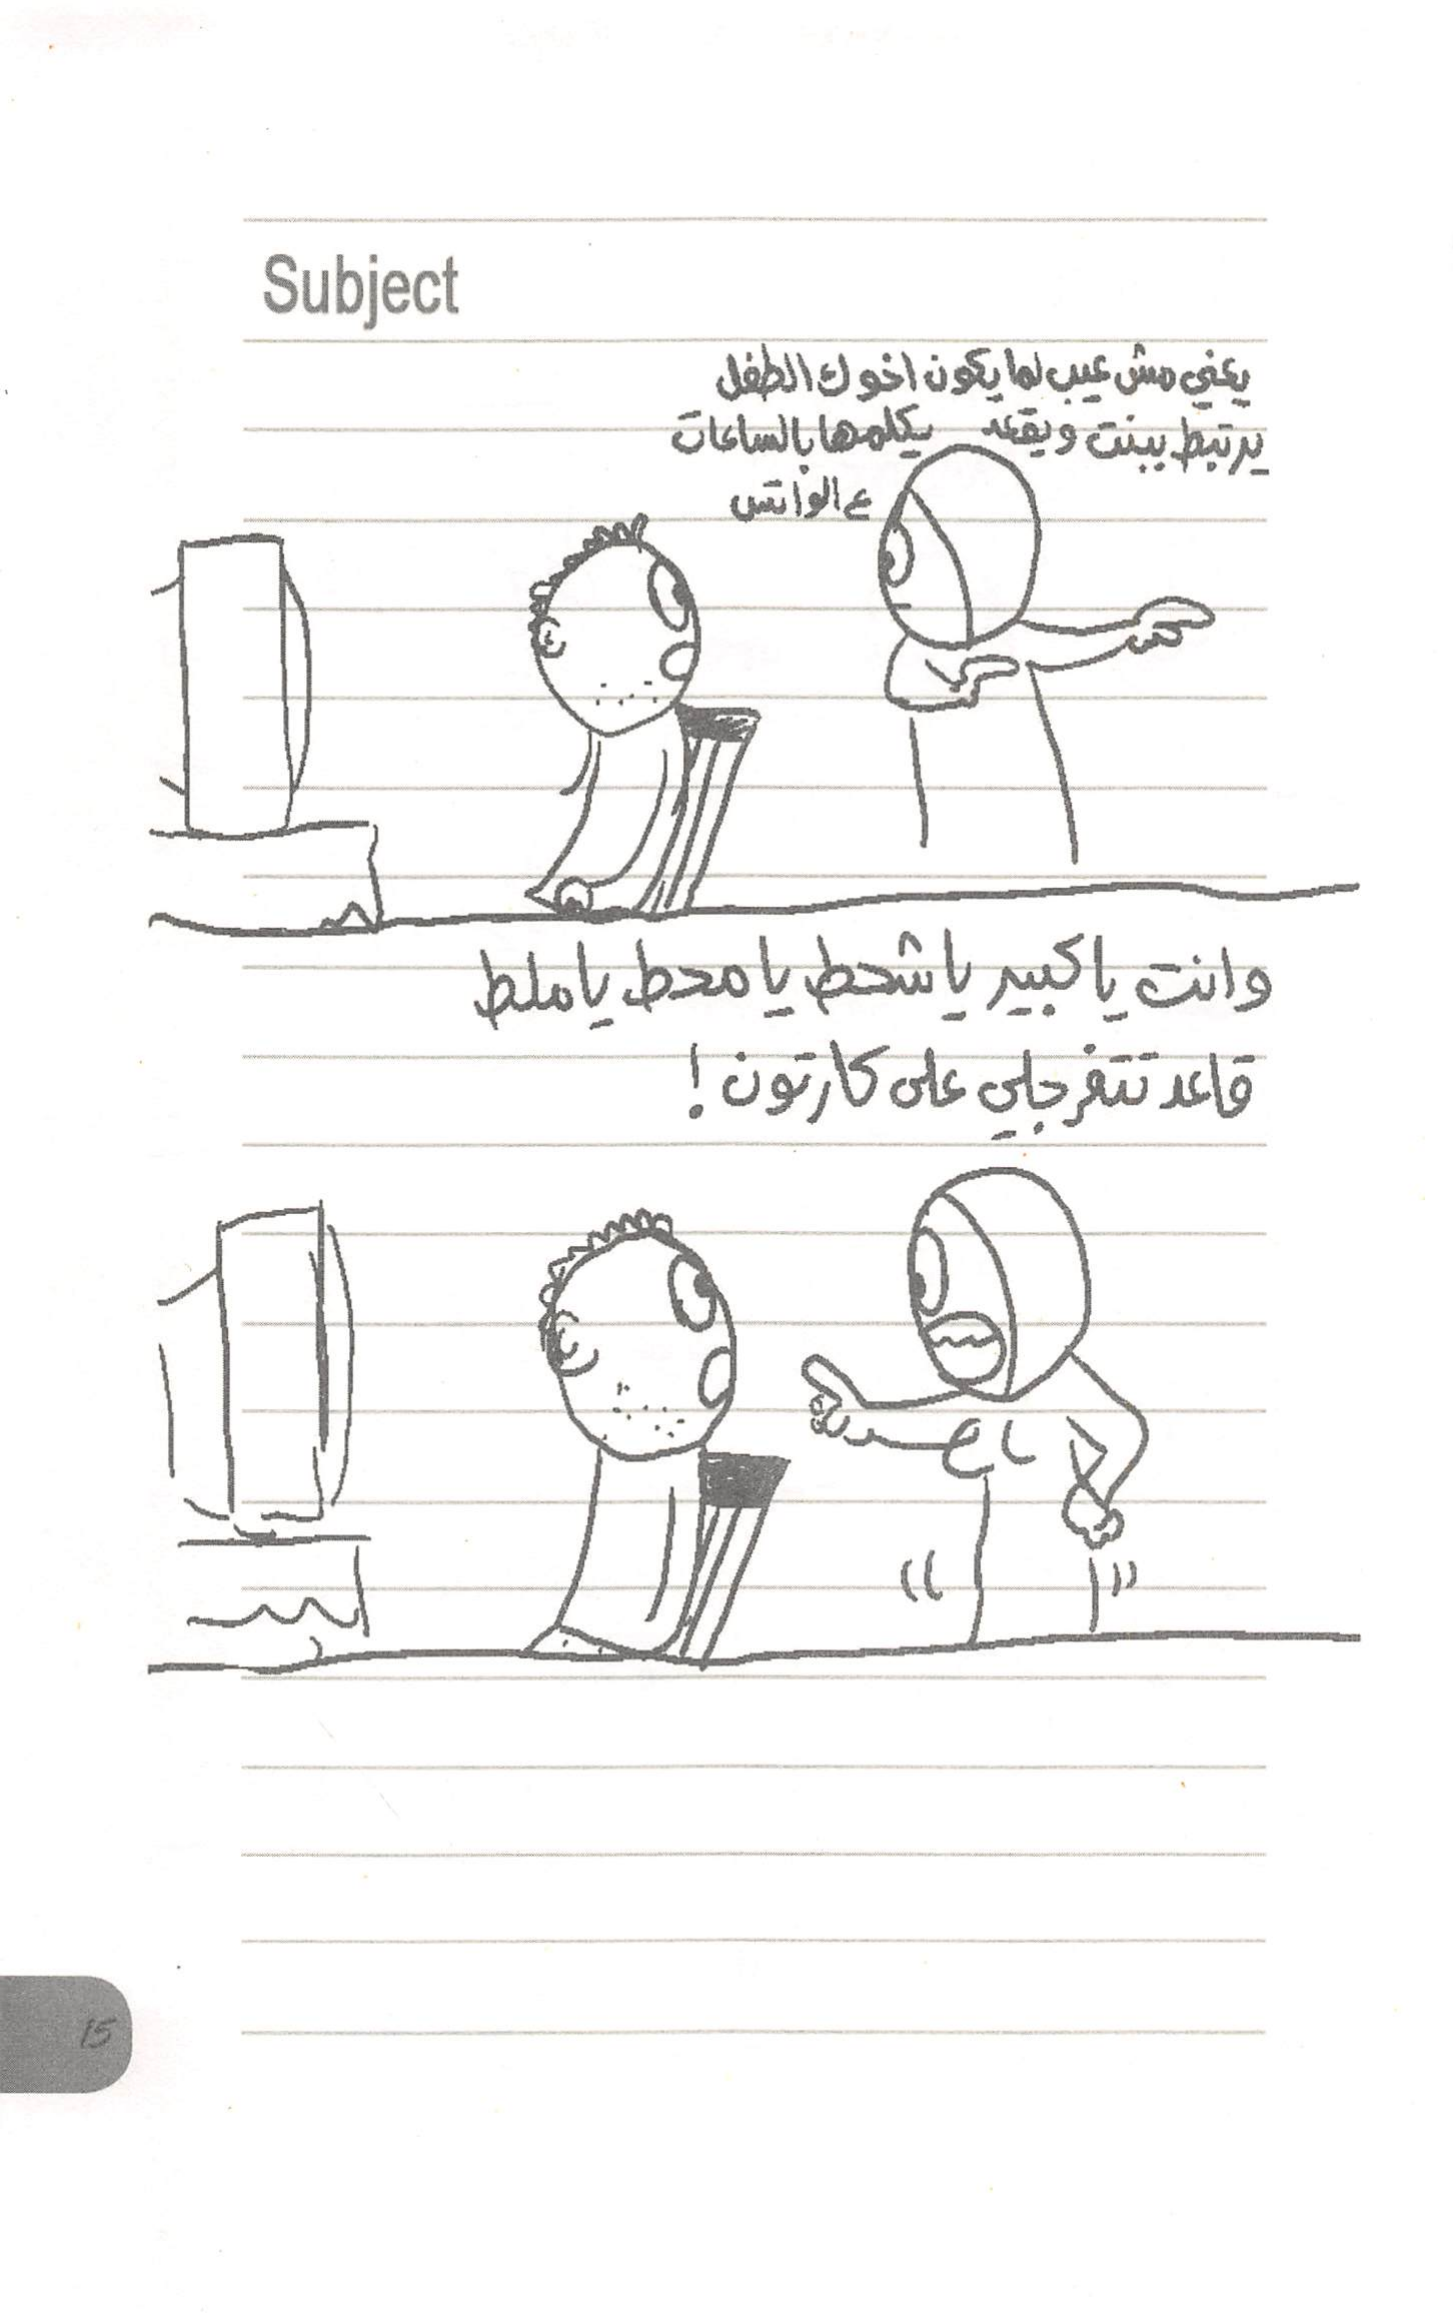 Subject
يعني مش عيب لما يكون اخوك الطفل
يرتبط ببنت ويقعد يكلمها بالساعات
ع الواتس
وانت يا كبير يا شحط يا محط يا ملط
قاعد تتفرجلي على كارتون!
15